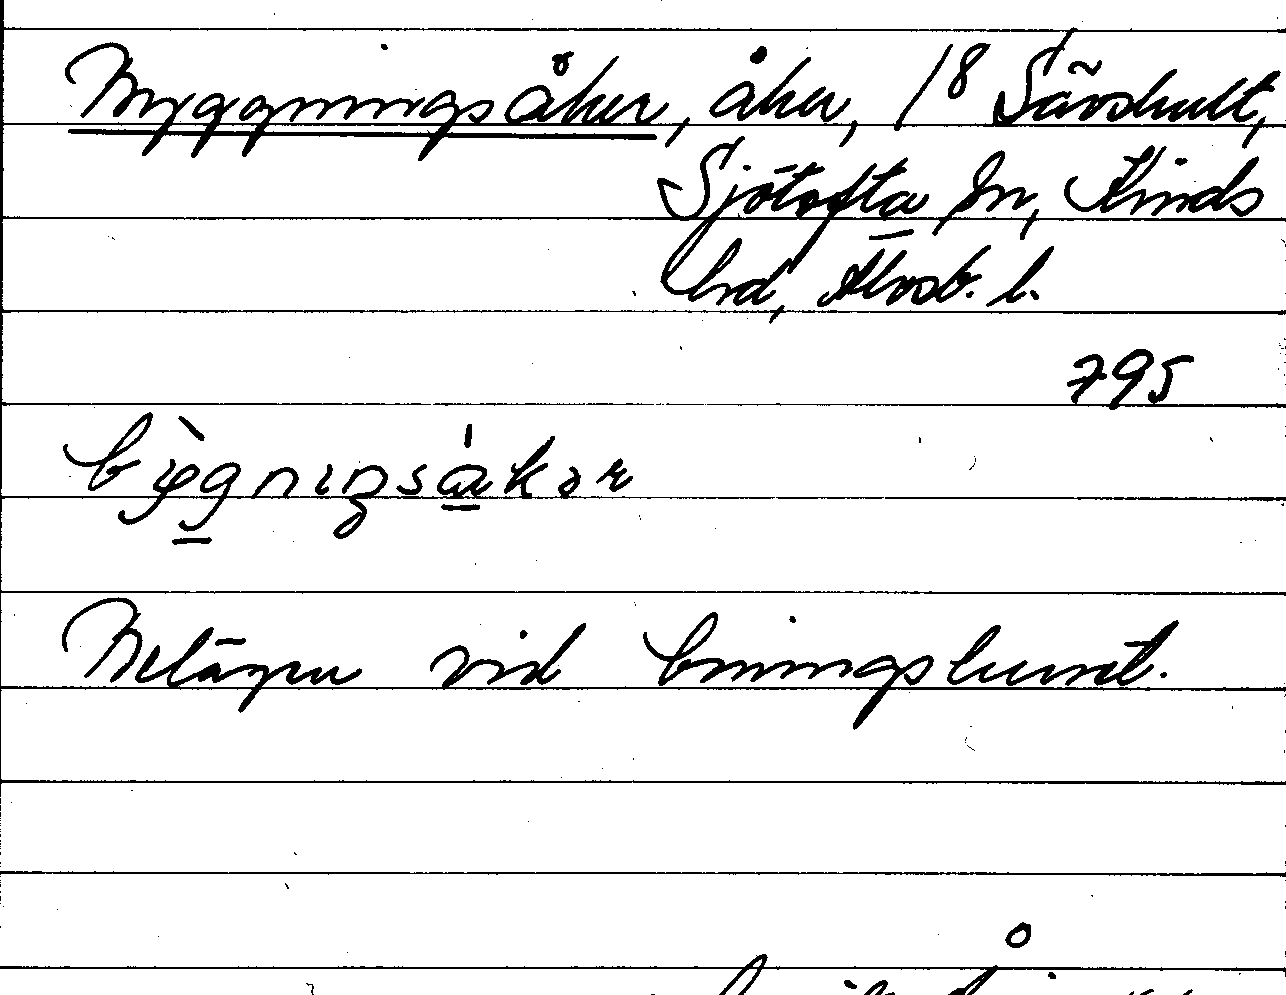 Byggningsåker, åker, 1⁸ Sävshult,
Sjötofta sn, Kinds
hd, Älvsb. l.
795
bỳgnıŋsákər
Belägen vid boningshuset.